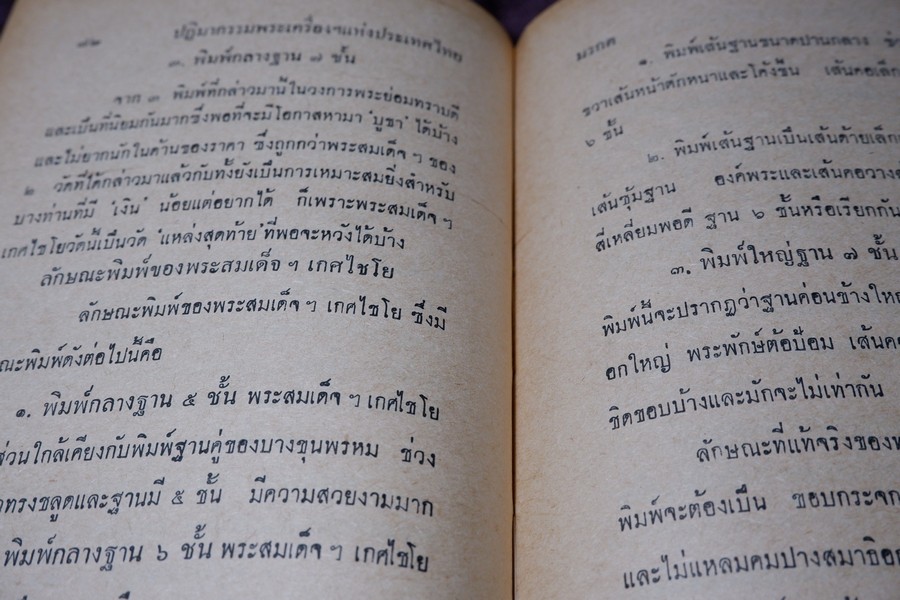 ปฏิมากรรมพระเครื่องฯแห่งประเทศไทย
๓. พิมพ์กลางฐาน ๗ ชั้น
จาก ๓ พิมพ์ที่กล่าวมานี้ในวงการพระย่อมทราบดี
และเป็นที่นิยมกันมากซึ่งพอที่จะมีโอกาสหามา 'บูชา' ได้บ้าง
และไม่ยากนักในด้านของราคา ซึ่งถูกกว่าพระสมเด็จ ๆ ของ
๒ วัดที่ได้กล่าวมาแล้วกับทั้งยังเป็นการเหมาะสมยิ่งสำหรับ
บางท่านที่มี 'เงิน' น้อยแต่อยากได้ ก็เพราะพระสมเด็จ ๆ
เกศไชโยวัดนี้เป็นวัด 'แหล่งสุดท้าย' ที่พอจะหวังได้บ้าง
ลักษณะพิมพ์ของพระสมเด็จ ๆ เกศไชโย
ลักษณะพิมพ์ของพระสมเด็จ ๆ เกศไชโย ซึ่งมี
ณะพิมพ์ดังต่อไปนี้คือ
๑. พิมพ์กลางฐาน ๕ ชั้น พระสมเด็จ ๆ เกศไชโย
ส่วนใกล้เคียงกับพิมพ์ฐานคู่ของบางขุนพรหม ช่วง
ทรงชลูดและฐานมี ๕ ชั้น มีความสวยงามมาก
พิมพ์กลางฐาน ๖ ชั้น พระสมเด็จ ๆ เกศไชโย
มรกต
๑. พิมพ์เส้นฐานขนาดปานกลาง
ขวาเส้นหน้าตักหนาและโค้งขึ้น เส้นคอเล็ก
๖ ชั้น
๒. พิมพ์เส้นฐานเป็นเส้นด้ายเล็ก
เส้นซุ้มฐาน องค์พระและเส้นคอวาง
สี่เหลี่ยมพอดี ฐาน ๖ ชั้นหรือเรียกกัน
๓. พิมพ์ใหญ่ฐาน ๗ ชั้น
พิมพ์นี้จะปรากฏว่าฐานค่อนข้างใหญ่
อกใหญ่ พระพักษ์ต้อป้อม เส้นคอ
ชิดขอบบ้างและมักจะไม่เท่ากัน
ลักษณะที่แท้จริงของ
พิมพ์จะต้องเป็น ขอบกระจก
และไม่แหลมคมปางสมาธิ